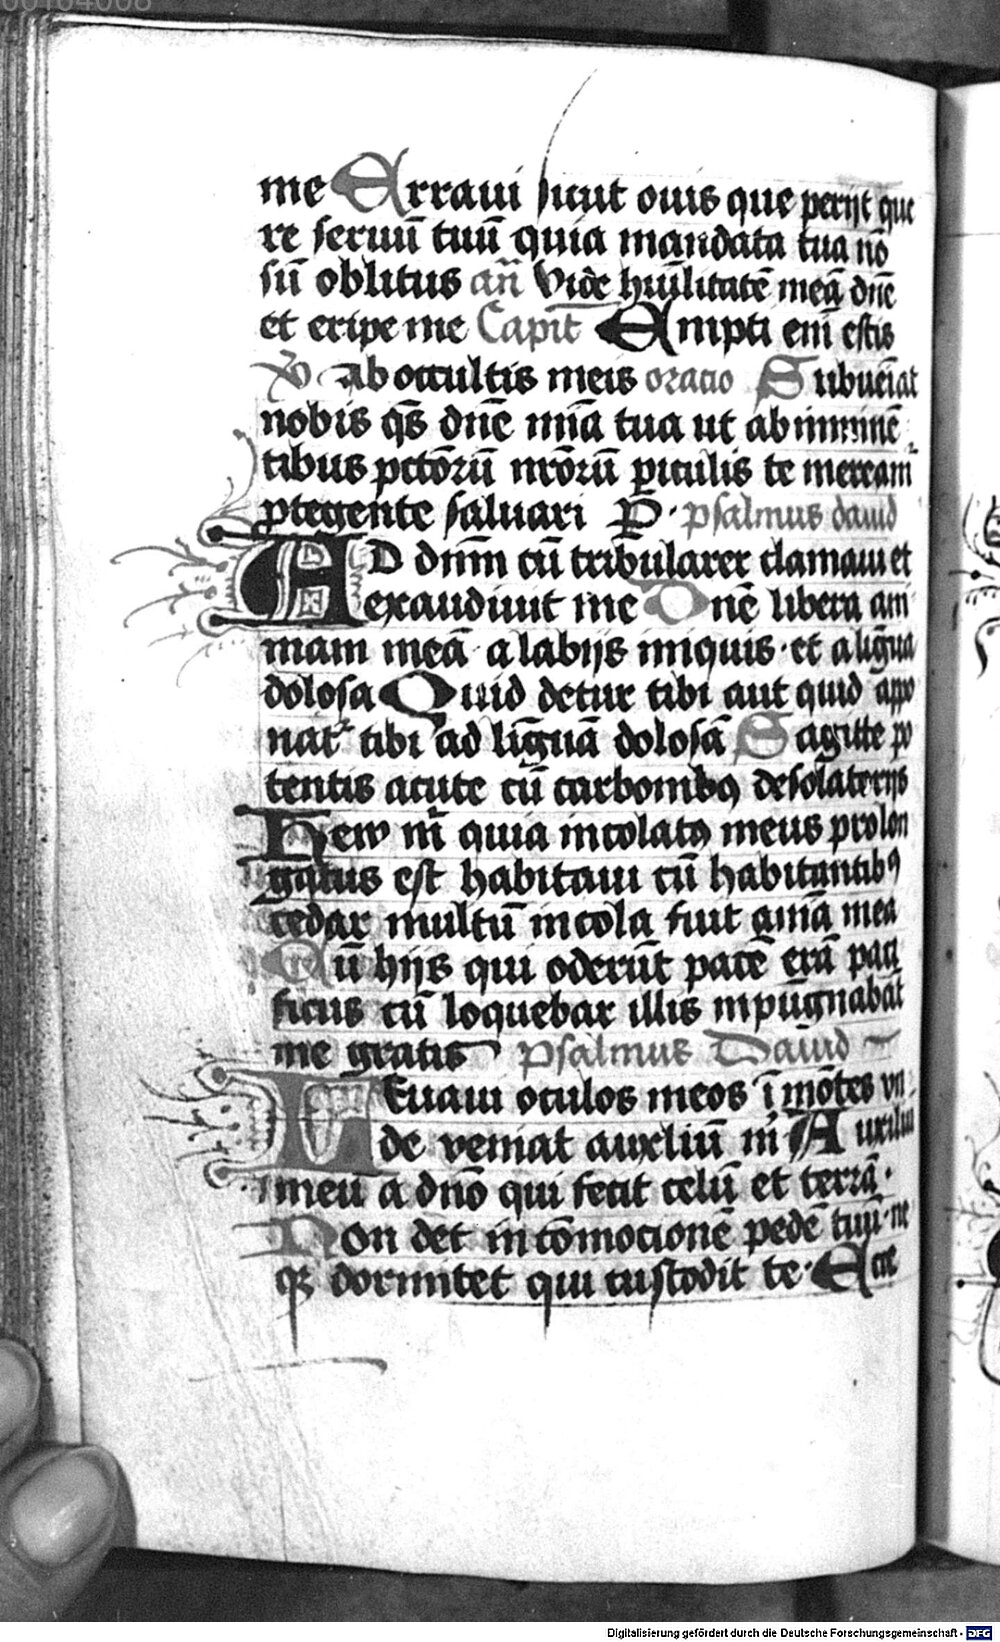 me Erraui sicut ouis que perijt que
re seruū tuū quia mandata tua nō
sū oblitus an̄ Vide hūilitatē meā dn̄e
et eripe me Capit̄ Empti enī estis
V Ab occultis meis oracio Subueīat
nobis qs̄ dn̄e mīa tua ut ab imminē
tibus pctōrū nrōrū piculis te meream̄
ptegente saluari P · psalmus dauid
AD dn̄m cū tribularer clamaui et
exaudiuit me Dn̄e libera ani
mam meā a labijs iniquis · et a līgua
dolosa Quid detur tibi aut quid appo
nat᷑ tibi ad līguā dolosā Sagitte po
tentis acute cū carbonibꝯ desolatorijs
Hew m̄ quia incolatꝯ meus prolon
gatus est habitaui cū habitantibꝯ
cedar multū incola fuit aīa mea
Cū hijs qui oderūt pacē erā paci
ficus cū loquebar illis inpūgnabāt
me gratis psalmus Dauid
LEuaui oculos meos ī mōtes vn
de veniat auxliū m̄ Auxiliū
meū a dn̄o qui fecit celū et terrā ·
Non det in cōmocionē pedē tuū · ne
qꝫ dormitet qui custodit te · Ecce
00104008
Digitalisierung gefördert durch die Deutsche Forschungsgemeinschaft - DFG